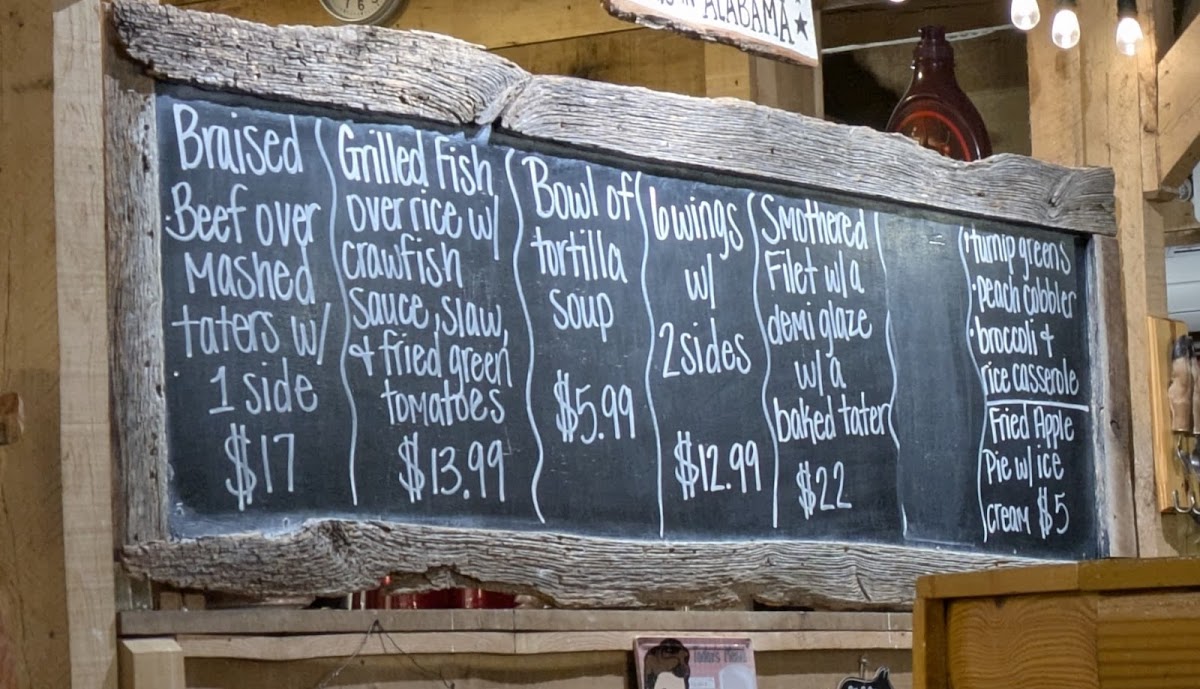 IN ALABAMA
Braised
Beef over
Mashed
taters w/
1 side
$17
Grilled Fish
over rice w/
crawfish
sauce, slaw,
+ fried green
tomatoes
$13.99
Bowl of
tortilla
soup
$5.99
6 wings
w/
2 sides
$12.99
Smothered
Filet w/ a
demi glaze
w/ a
baked tater
$22
·turnip greens
·peach cobbler
·broccoli +
rice casserole
Fried Apple
Pie w/ ice
cream $5
Today's